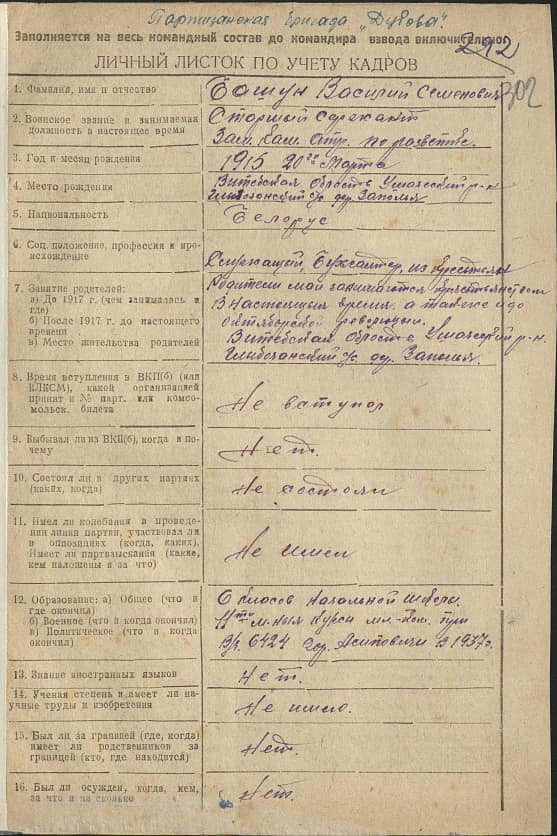 Партизанская бригада „Дубова".
Заполняется на весь командный состав до командира взвода включительно
292
302
ЛИЧНЫЙ ЛИСТОК ПО УЧЕТУ КАДРОВ
1. Фамилия, имя и отчество
Башун Василий Семенович
2. Воинское звание и занимаемая
должность в настоящее время
Старший сержант
Зам. Ком. Отр. по разветке.
3. Год и месяц рождения
1915 20го Марта
4. Место рождения
Витебская область Ушачский р-н
с/с дер. Заполья
5. Национальность
Белорус
6. Соц. положение, профессия и про-
исхождение
Служащий, Бухгалтер, из крестьян
7. Занятие родителей:
а) До 1917 г. (чем занималась и
где)
б) После 1917 г. до настоящего
времени
в) Место жительства родителей
Родители мои занимаются
В настоящия время, а также и до
октябрьской революции.
Витебская область Ушачский р-н.
с/с. дер. Заполья.
8. Время вступления в ВКП(б) (или
ВЛКСМ), какой организацией
принят и № парт. или комсо-
мольск. билета
Не вступал
9. Выбывал ли из ВКП(б), когда и по-
чему
Нет.
10. Состоял ли в других партиях
(каких, когда)
Не состоял
11. Имел ли колебания в проведе-
нии линии партии, участвовал ли
в оппозициях (когда, каких).
Имеет ли партвзыскания (какие,
кем наложены и за что)
Не имел
12. Образование: а) Общее (что и
где окончил)
б) Военное (что и когда окончил)
в) Политическое (что и когда
окончил)
6 класов начальной школы
курсы мл. ком. при
В/ч 6424 гор. Асиповичи в 1937г.
13. Знание иностранных языков
Нет.
14. Ученая степень и имеет ли на-
учные труды и изобретения
Не имею.
15. Был ли за границей (где, когда)
имеет ли родственников за
границей (кто, где находится)
Нет.
16. Был ли осужден, когда, кем,
за что и на сколько
Нет.